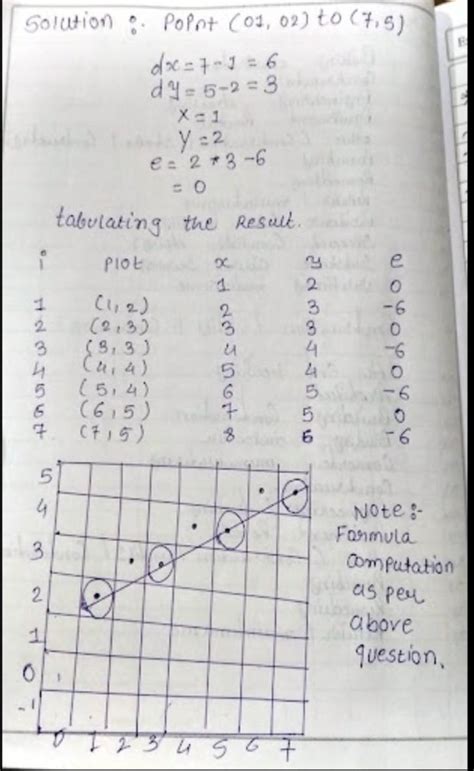 Solution :. Point (01, 02) to (7,5)
dx = 7-1 = 6
dy = 5-2 = 3
x = 1
y = 2
e = 2 * 3 - 6
= 0
tabulating the Result.
i Plot x y e
1 2 0
1 (1,2) 2 3 -6
2 (2,3) 3 3 0
3 (3,3) 4 4 -6
4 (4,4) 5 4 0
5 (5,4) 6 5 -6
6 (6,5) 7 5 0
7 (7,5) 8 6 -6
5
4
3
2
1
0
-1
0 1 2 3 4 5 6 7
Note :-
Farmula
computation
as per
above
question.